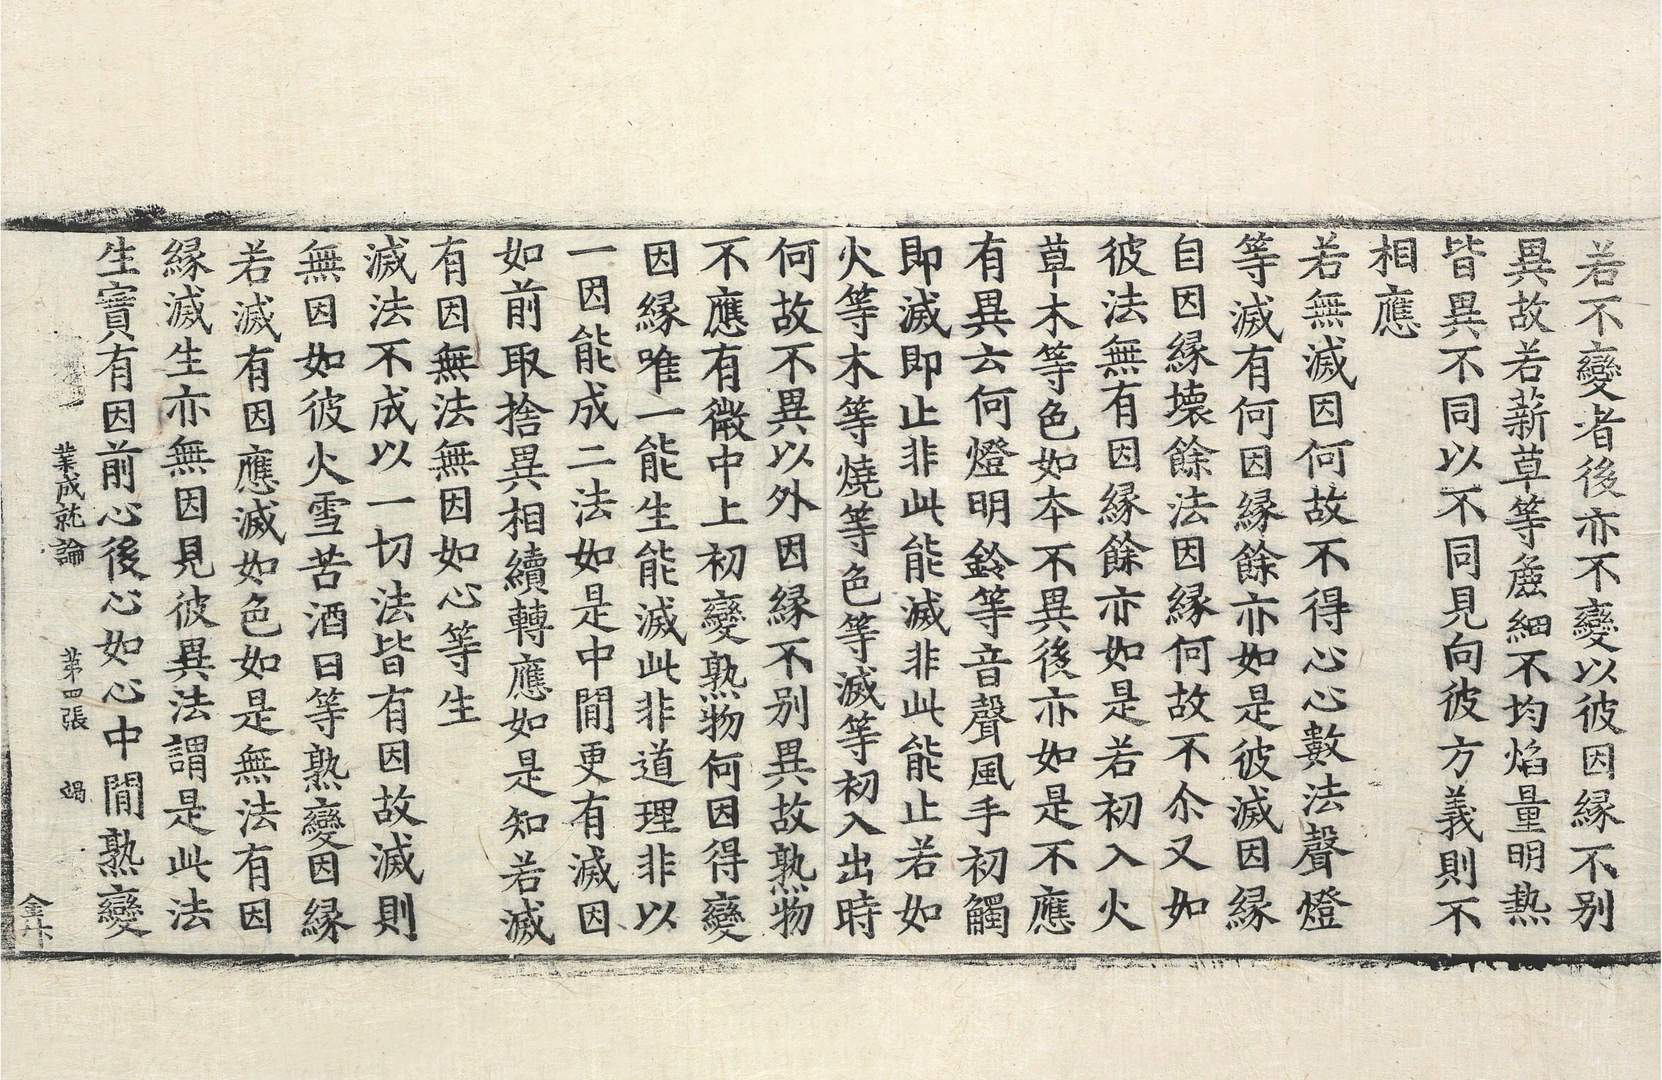 若不變者後亦不變以彼因縁不别
異故若薪草等麁細不均焰量明熱
皆異不同以不同見向彼方義則不
相應
若無滅因何故不得心心數法聲燈
等滅有何因縁餘亦如是彼滅因縁
自因縁壊餘法因縁何故不尒又如
彼法無有因縁餘亦如是若初入火
草木等色如夲不異後亦如是不應
有異云何燈明鈴等音聲風手初觸
即滅即止非此能滅非此能止若如
火等木等燒等色等滅等初入出時
何故不異以外因縁不别異故熟物
不應有微中上初變熟物何因得變
因縁唯一能生能滅此非道理非以
一因能成二法如是中間更有滅因
如前取捨異相續轉應如是知若滅
有因無法無因如心等生
滅法不成以一切法皆有因故滅則
無因如彼火雪苦酒日等熟變因縁
若滅有因應滅如色如是無法有因
縁滅生亦無因見彼異法謂是此法
生實有因前心後心如心中間熟變
業成就論 第四張 竭